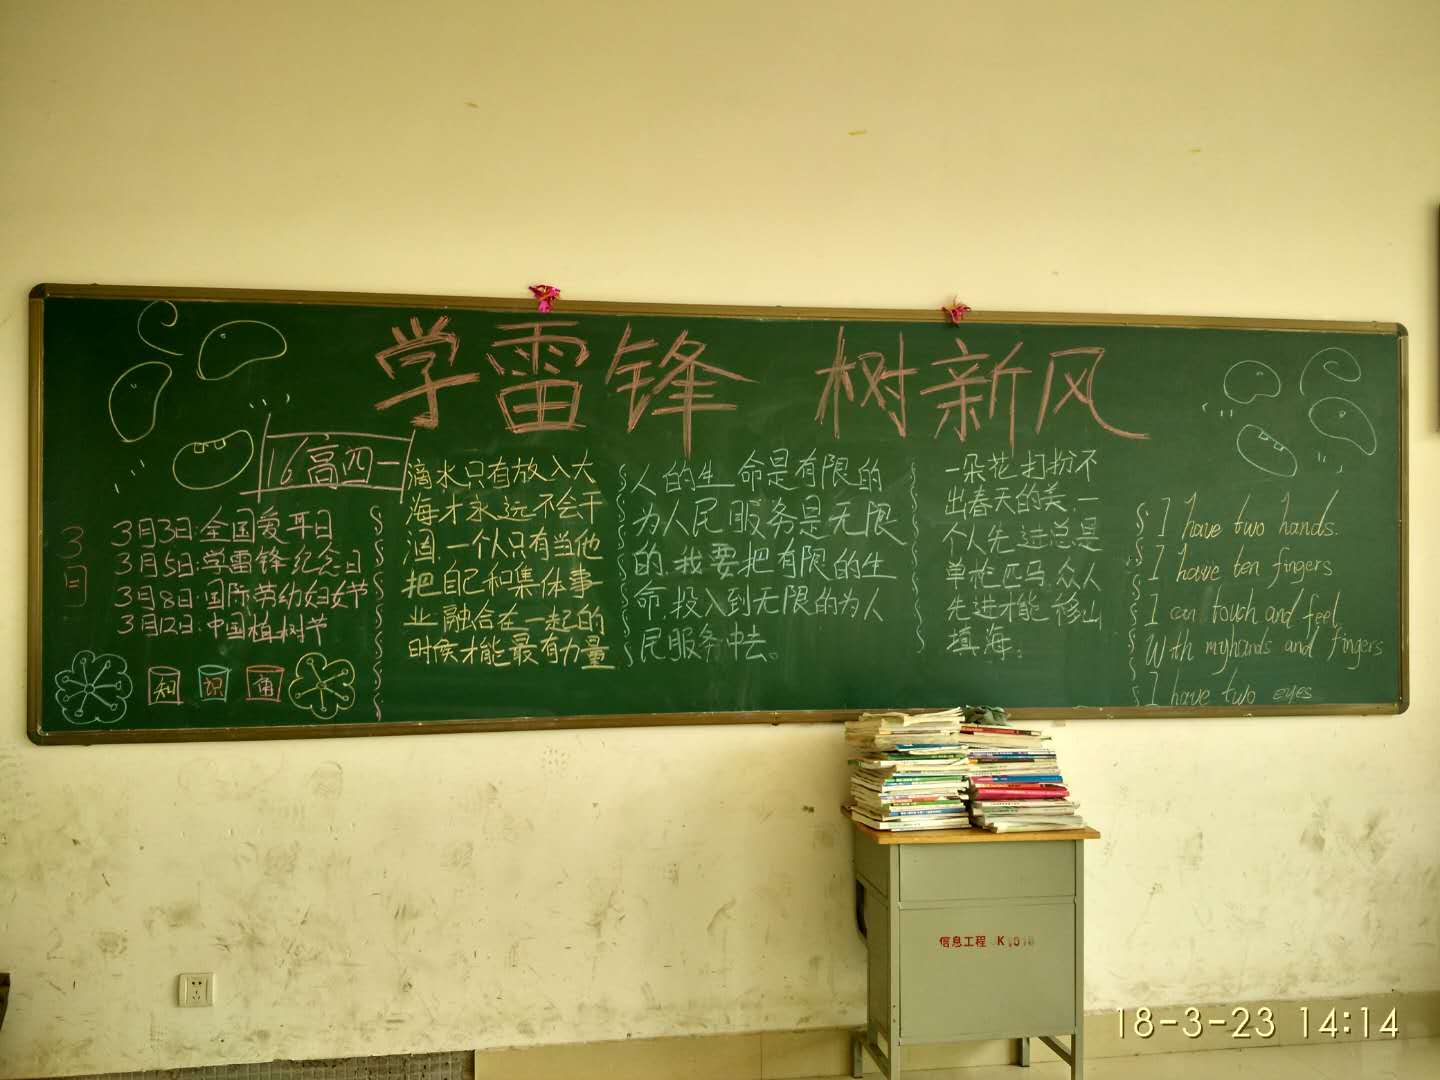 学雷锋 树新风
16高四一
3月
3月3日:全国爱耳日
3月5日:学雷锋纪念日
3月8日:国际劳动妇女节
3月12日:中国植树节
知 识 角
滴水只有放入大
海才永远不会干
涸,一个人只有当他
把自己和集体事
业融合在一起的
时候才能最有力量
人的生命是有限的
为人民服务是无限
的,我要把有限的生
命,投入到无限的为人
民服务中去。
一朵花打扮不
出春天的美,一
个人先进总是
单枪匹马,众人
先进才能移山
填海。
I have two hands.
I have ten fingers
I can touch and feel
With my hands and fingers
I have two eyes
信息工程 K1018
18-3-23 14:14